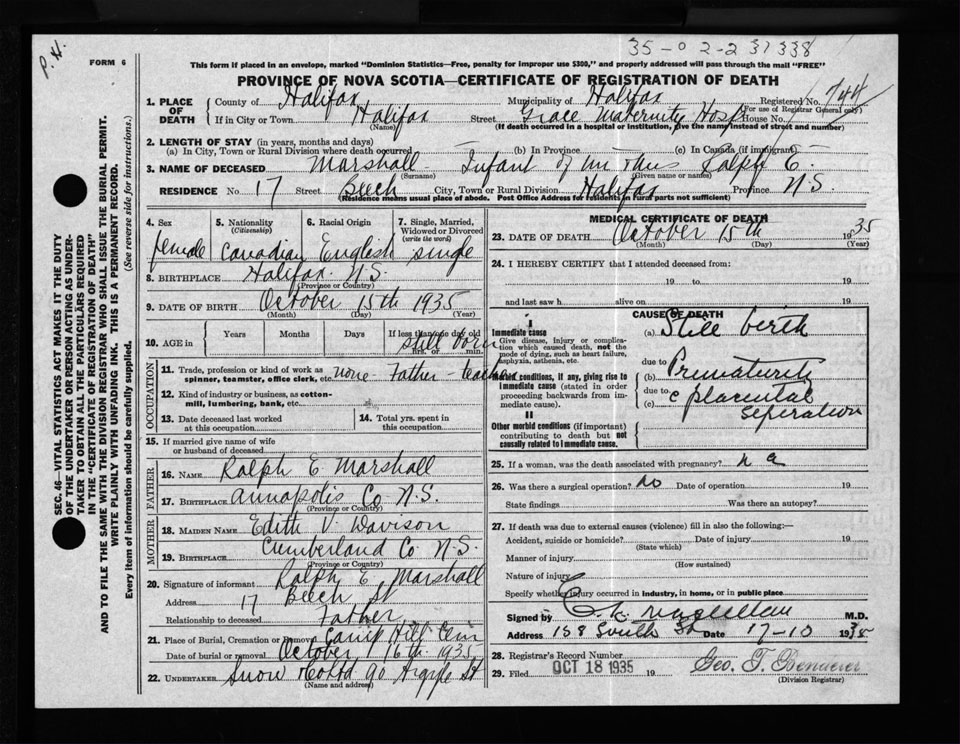 35-02-231338
P.H.
FORM 6
This form if placed in an envelope, marked "Dominion Statistics—Free, penalty for improper use $300," and properly addressed will pass through the mail "FREE"
PROVINCE OF NOVA SCOTIA—CERTIFICATE OF REGISTRATION OF DEATH
SEC. 46—VITAL STATISTICS ACT MAKES IT THE DUTY OF THE UNDERTAKER OR PERSON ACTING AS UNDER-
TAKER TO OBTAIN ALL THE PARTICULARS REQUIRED IN THE "CERTIFICATE OF REGISTRATION OF DEATH"
AND TO FILE THE SAME WITH THE DIVISION REGISTRAR WHO SHALL ISSUE THE BURIAL PERMIT.
WRITE PLAINLY WITH UNFADING INK. THIS IS A PERMANENT RECORD.
Every item of information should be carefully supplied. (See reverse side for instructions.)
1. PLACE OF DEATH County of Halifax Municipality of Halifax Registered No. 744
(For use of Registrar General only)
If in City or Town Halifax Street Grace Maternity Hosp House No.
(Name) (If death occurred in a hospital or institution, give the name instead of street and number)
2. LENGTH OF STAY (in years, months and days)
(a) In City, Town or Rural Division where death occurred (b) In Province (c) In Canada (if immigrant)
3. NAME OF DECEASED Marshall Infant of Mr Mrs Ralph E.
(Surname) (Given name or names)
RESIDENCE No. 17 Street Beech City, Town or Rural Division Halifax Province N.S.
(Residence means usual place of abode. Post Office Address for residents in rural parts not sufficient)
4. Sex 5. Nationality (Citizenship) 6. Racial Origin 7. Single, Married, Widowed or Divorced (write the word)
female Canadian English single
8. BIRTHPLACE Halifax N.S.
(Province or Country)
9. DATE OF BIRTH October 15th 1935
(Month) (Day) (Year)
10. AGE in Years Months Days If less than one day old
still born
hrs. or min.
OCCUPATION
11. Trade, profession or kind of work as spinner, teamster, office clerk, etc. none Father - teacher
12. Kind of industry or business, as cotton-mill, lumbering, bank, etc.
13. Date deceased last worked at this occupation 14. Total yrs. spent in this occupation
15. If married give name of wife or husband of deceased
FATHER
16. NAME Ralph E Marshall
17. BIRTHPLACE Annapolis Co N.S.
(Province or Country)
MOTHER
18. MAIDEN NAME Edith V Davison
19. BIRTHPLACE Cumberland Co N.S.
(Province or Country)
20. Signature of informant Ralph E Marshall
Address 17 Beech St
Relationship to deceased Father
21. Place of Burial, Cremation or Removal Camp Hill Cem
Date of burial or removal October 16th 1935
22. UNDERTAKER Snow 90 Argyle St
(Name and address)
MEDICAL CERTIFICATE OF DEATH
23. DATE OF DEATH October 15th 1935
(Month) (Day) (Year)
24. I HEREBY CERTIFY that I attended deceased from:
19 to 19
and last saw h alive on 19
CAUSE OF DEATH
I
Immediate cause
Give disease, injury or complication which caused death, not the mode of dying, such as heart failure, asphyxia, asthenia, etc.
(a) Still birth
due to
Morbid conditions, if any, giving rise to immediate cause (stated in order proceeding backwards from immediate cause).
(b) Prematurity
due to
(c) c placental seperation
II
Other morbid conditions (if important) contributing to death but not causally related to immediate cause.
25. If a woman, was the death associated with pregnancy? n a
26. Was there a surgical operation? no Date of operation 19
State findings Was there an autopsy?
27. If death was due to external causes (violence) fill in also the following:—
Accident, suicide or homicide? Date of injury 19
(State which)
Manner of injury
(How sustained)
Nature of injury
Specify whether injury occurred in industry, in home, or in public place
Signed by M.D.
Address 158 South St Date 17-10 1935
28. Registrar's Record Number
29. Filed OCT 18 1935 19 Geo. T.
(Division Registrar)